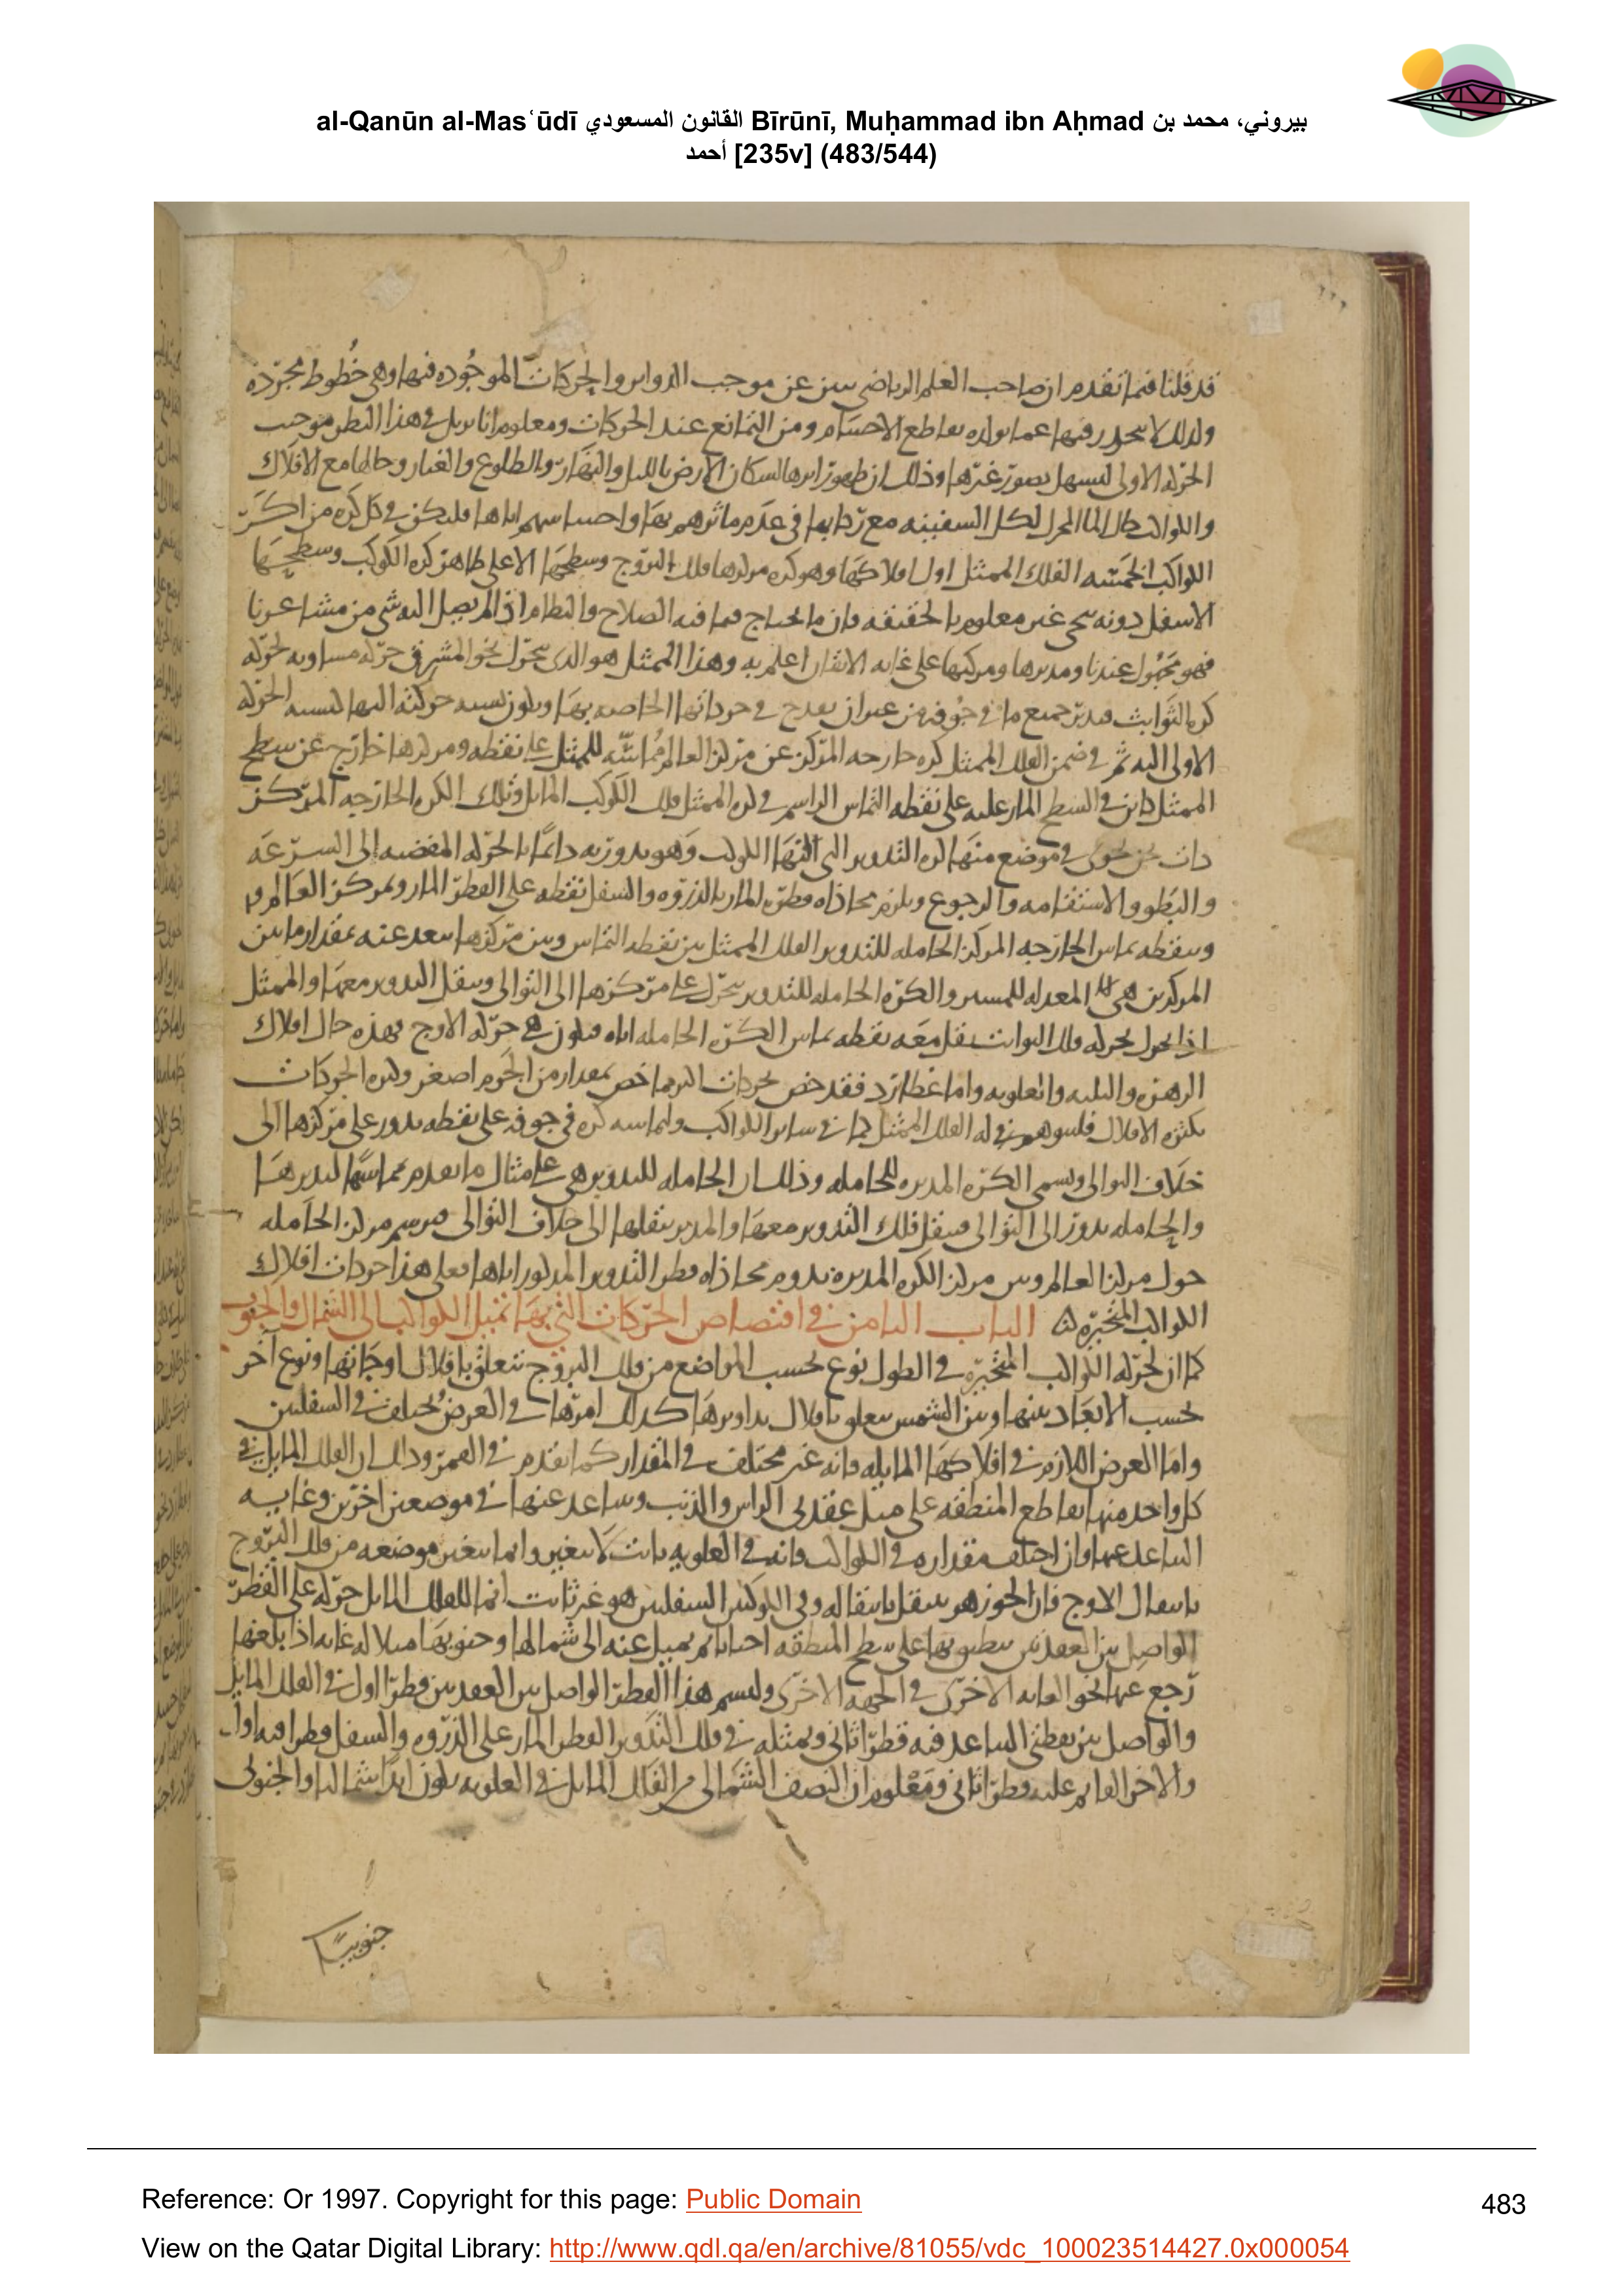 al-Qanūn al-Masʿūdī القانون المسعودي Bīrūnī, Muḥammad ibn Aḥmad بيروني، محمد بن
أحمد [235v] (483/544)
قد قلنا فيما تقدم ان صاحب العلم الرياضي عن موجب الدوائر والحركات الموجوده فيها وهي خطوط مجرده
ولذلك لا فيها عما تقاطع الاجسام ومن التمانع عند الحركات ومعلوم انا في هذا النظر موجب
الحركه الاولى ليسهل تصور غيرها وذلك ان ظهور لسكان الارض بالليل والنهار والطلوع والغيار وحالها مع الافلاك
والكواكب المحرك لكل السفينه مع في عدم بها اياها فليكن في كل كره من اكر
الكواكب الخمسه الفلك الممثل اول افلاكها وهو كره مركزها فلك البروج وسطحها الاعلى ظاهر كره الكوكب وسطحها
الاسفل دونه غير معلوم بالحقيقه فان ما يحتاج فيه الصلاح والنظام اذا لم يصل اليه شي من مشاعرنا
فهو مجهول عندنا ومدبرها ومركبها على غايه الاتقان اعلم به وهذا الممثل هو الذي يتحرك نحو المشرق حركه مساويه لحركه
كره الثوابت فيدير جميع ما في جوفه من غير ان يقدح في حركاتها الخاصه بها ويكون نسبه حركته اليها كنسبه الحركه
الاولى اليه ثم في ضمن الفلك الممثل كره خارجه المركز عن مركز العالم مماسه للممثل على نقطه ومركزها خارج عن سطح
الممثل كائن في السطح المار عليه على نقطه التماس الراسم في كره الممثل فلك الكوكب المايل وتلك الكره الخارجه المركز
ذات في موضع منها كره التدوير التي اليها الكوكب وهو يدور به دائما بالحركه المفضيه الى السرعه
والبطو والاستقامه والرجوع ويلزم محاذاه قطره المار بالذروه والسفل نقطه على القطر المار بمركز العالم
وبنقطه تماس الخارجه المركز الحامله للتدوير الفلك الممثل بين نقطه التماس وبين مركزها يبعد عنه بمقدار ما بين
المركزين هي المعدله للمسير والكره الحامله للتدوير يتحرك على مركزها الى التوالى وينقل التدوير معها والممثل
اذا تحرك بحركه فلك الثوابت نقل معه نقطه تماس الكره الحامله اياه فيكون هي حركه الاوج فهذه حال افلاك
الزهره والعلويه واما عطارد فقد خص بحركات اكثر مما خص بمقدار من الجرم اصغر وكثره الحركات
بكثره الافلاك له الفلك الممثل كما في سائر الكواكب ولمماسه كره في جوفه على نقطه يدور على مركزها الى
خلاف التوالى ويسمى الكره المديره للحامله وذلك ان الحامله للتدوير هي على مثال ما تقدم تماسها لتديرها
والحامله يدور الى التوالى فينقل فلك التدوير معها والمدير ينقلها الى خلاف التوالى فيرسم مركز الحامله
حول مركز العالم وبين مركز الكره المديره يدوم محاذاه قطر التدوير المذكور اياها فعلى هذا حركات افلاك
الكواكب المتحيره الباب الثامن في اقتصاص الحركات التي بها تميل الكواكب الى الشمال والجنوب
كما ان لحركه الكواكب المتحيره في الطول نوع بحسب المواضع من فلك البروج تتعلق بافلاك اوجاتها ونوع اخر
بحسب الابعاد بينها وبين الشمس يتعلق بافلاك تداويرها كذلك امرها في العرض يختلف في السفليين
واما العرض اللازم في افلاكها المايله فانه غير مختلف في المقدار كما تقدم في القمر وذلك ان الفلك المايل في
كل واحد منها يقاطع المنطقه على ميل عقدتي الراس والذنب ويتباعد عنها في موضعين اخرين وغايه
التباعد عنها وان اختلف مقداره في الكواكب فانه في العلويه ثابت لا يتغير وانما يتغير موضعه من فلك البروج
بانتقال الاوج فان الجوزهر ينتقل بانتقاله وفي الكوكبين السفليين هو غير ثابت انما للفلك المايل حركه على القطر
الواصل بين العقدتين ينطبق بها على سطح المنطقه احيانا ثم يميل عنه الى شمالها وجنوبها ميلا له غايه اذا بلغها
رجع عنها نحو الغايه الاخرى في الجهه الاخرى وليسم هذا القطر الواصل بين العقدتين قطرا اول في الفلك المايل
والواصل بين نقطتي التباعد فيه قطرا ثاني وبمثله في فلك التدوير القطر المار على الذروه والسفل قطرا فيه اول
والاخر القايم عليه قطرا ثاني ومعلوم ان النصف الشمالي من الفلك المايل في العلويه يكون ابدا شماليا والجنوبي
جنوبيا
Reference: Or 1997. Copyright for this page: Public Domain
483
View on the Qatar Digital Library: http://www.qdl.qa/en/archive/81055/vdc_100023514427.0x000054